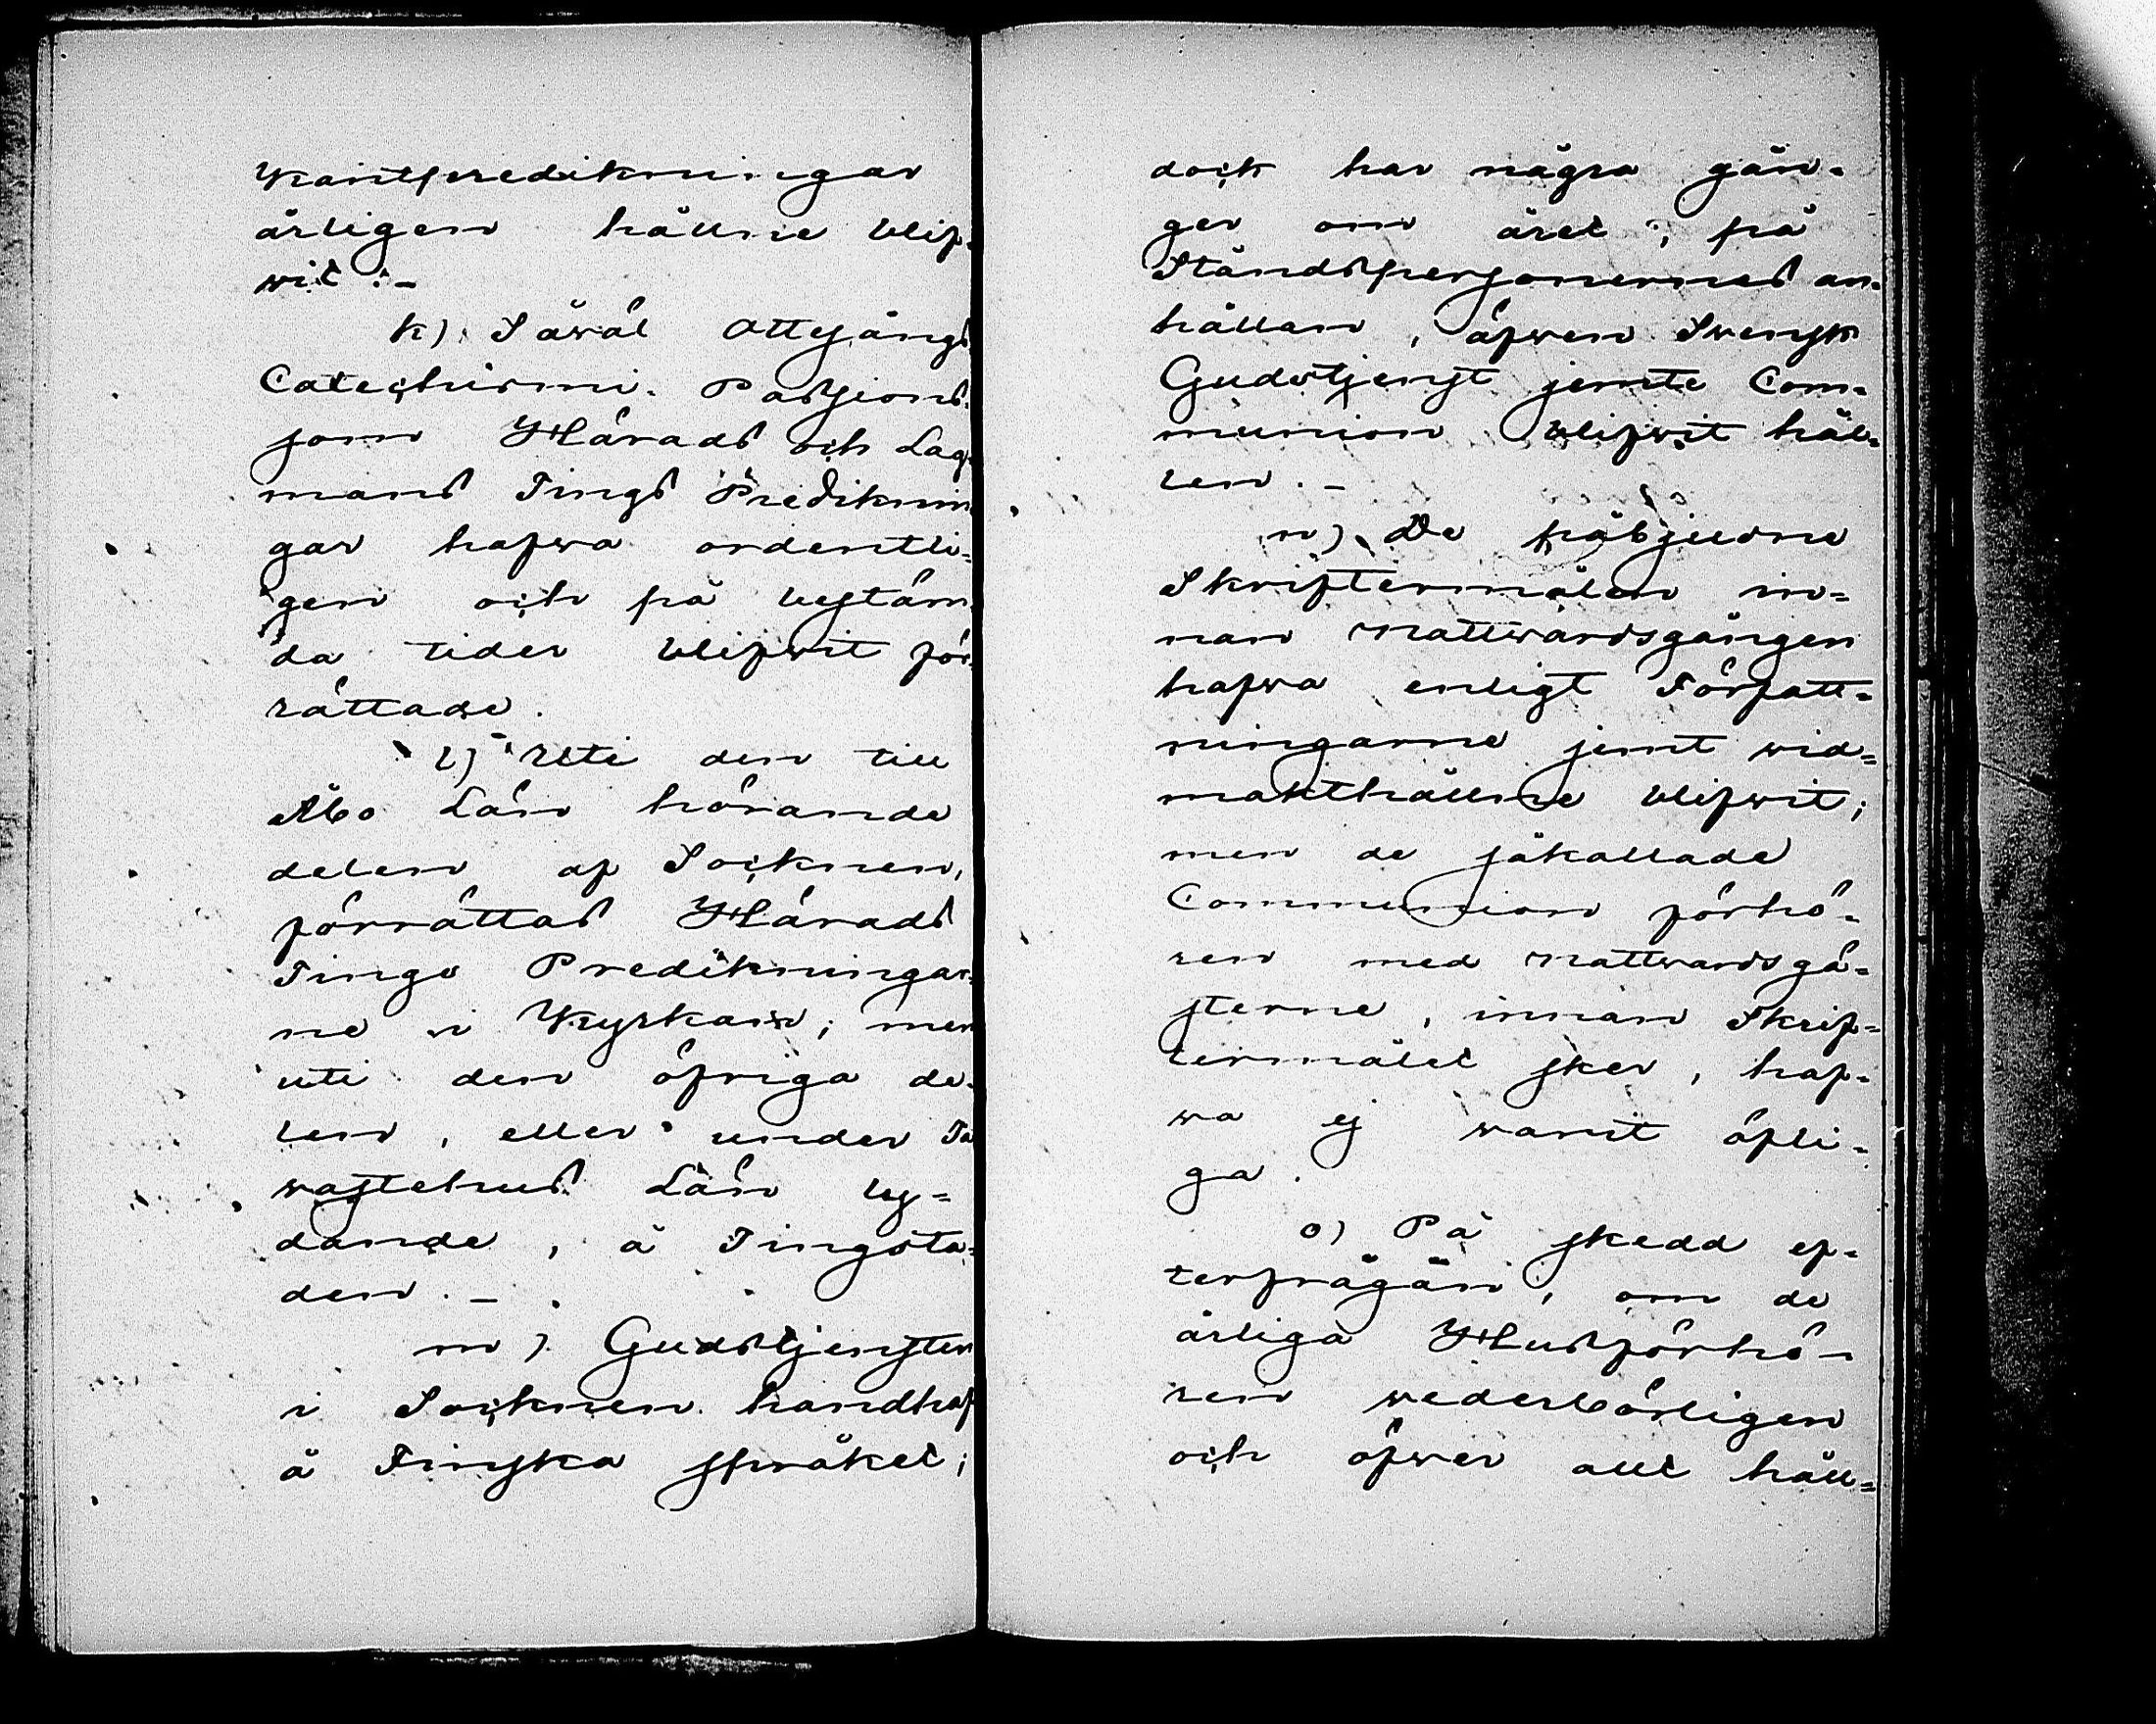 Wkantpredikningar
årligen hållne blif-
wit. –
k) Såwäl Ottesångs
Catechismi- Passions-
som Härads och Lag-
mans Tings Prediknin
gar hafwa ordentli-
gen och på bestäm
da tider blifwit för-
rättade.
l) Uti den till
Åbo Län hörande
delen af Socknen,
förrättas Härads
Tings Predikningar-
ne i Kyrkan; men
uti den öfriga de-
len, eller under Ta
wastehus Län ly-
dande, å Tingsta-
den. –
m). Gudstjensten
i Socknen handhaf
å Finska språket;
dock har några gån-
ger om året, på
Ståndspersonernes an-
hållan, äfwen Swensk
Gudstjenst jemte Com-
munion blifwit hål-
len. –
n) De påbjudne
Skriftermålen in-
nan Nattwardsgången
hafwa enligt Författ-
ningarne jemt wid-
makthållne blifwit;
men de såkallade
Communion förhö-
ren med Nattwardsgä-
sterne, innan Skrif-
termålet sker, haf-
wa ej warit öfli-
ga.
o) På skedd ef-
terfrågan, om de
årliga Husförhö-
ren wederbörligen
och öfwer allt håll-